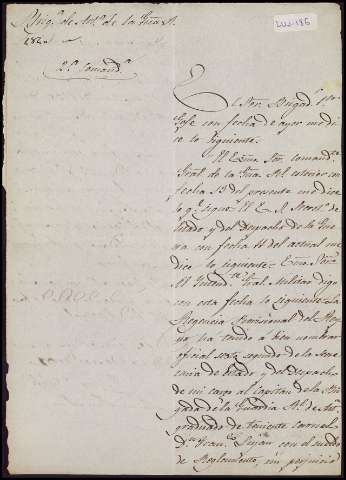 Brig.ª de Art.ª de la Gua. R.
2.º Comand.te
LUJ-186
El Sor. Brigad.r 1er
Gefe con fecha de ayer me di-
ce lo siguiente.
El Exmo Sor. Comand.te
Gral. de la Gua. Rl. esterior con
fecha 15 del presente me dice
lo q.e sigue. El E. S. Secret.º de
Estado y del Despacho de la Guer-
ra con fecha 14 del actual me
dice lo siguiente. Exmo. Sor.
Al Intend.te Gral. Militar digo
con esta fecha lo siguiente. La
Regencia Provisional del Rey-
no ha tenido á bien nombrar
oficial sesto segundo de la Secre-
taria de Estado y del Despacho
de mi cargo al Capitan de la Bri-
gada de la Guardia Rl. de Art.ª
graduado de Teniente Coronel
D.n Fran.co con el sueldo
de Reglamento, sin perjuicio